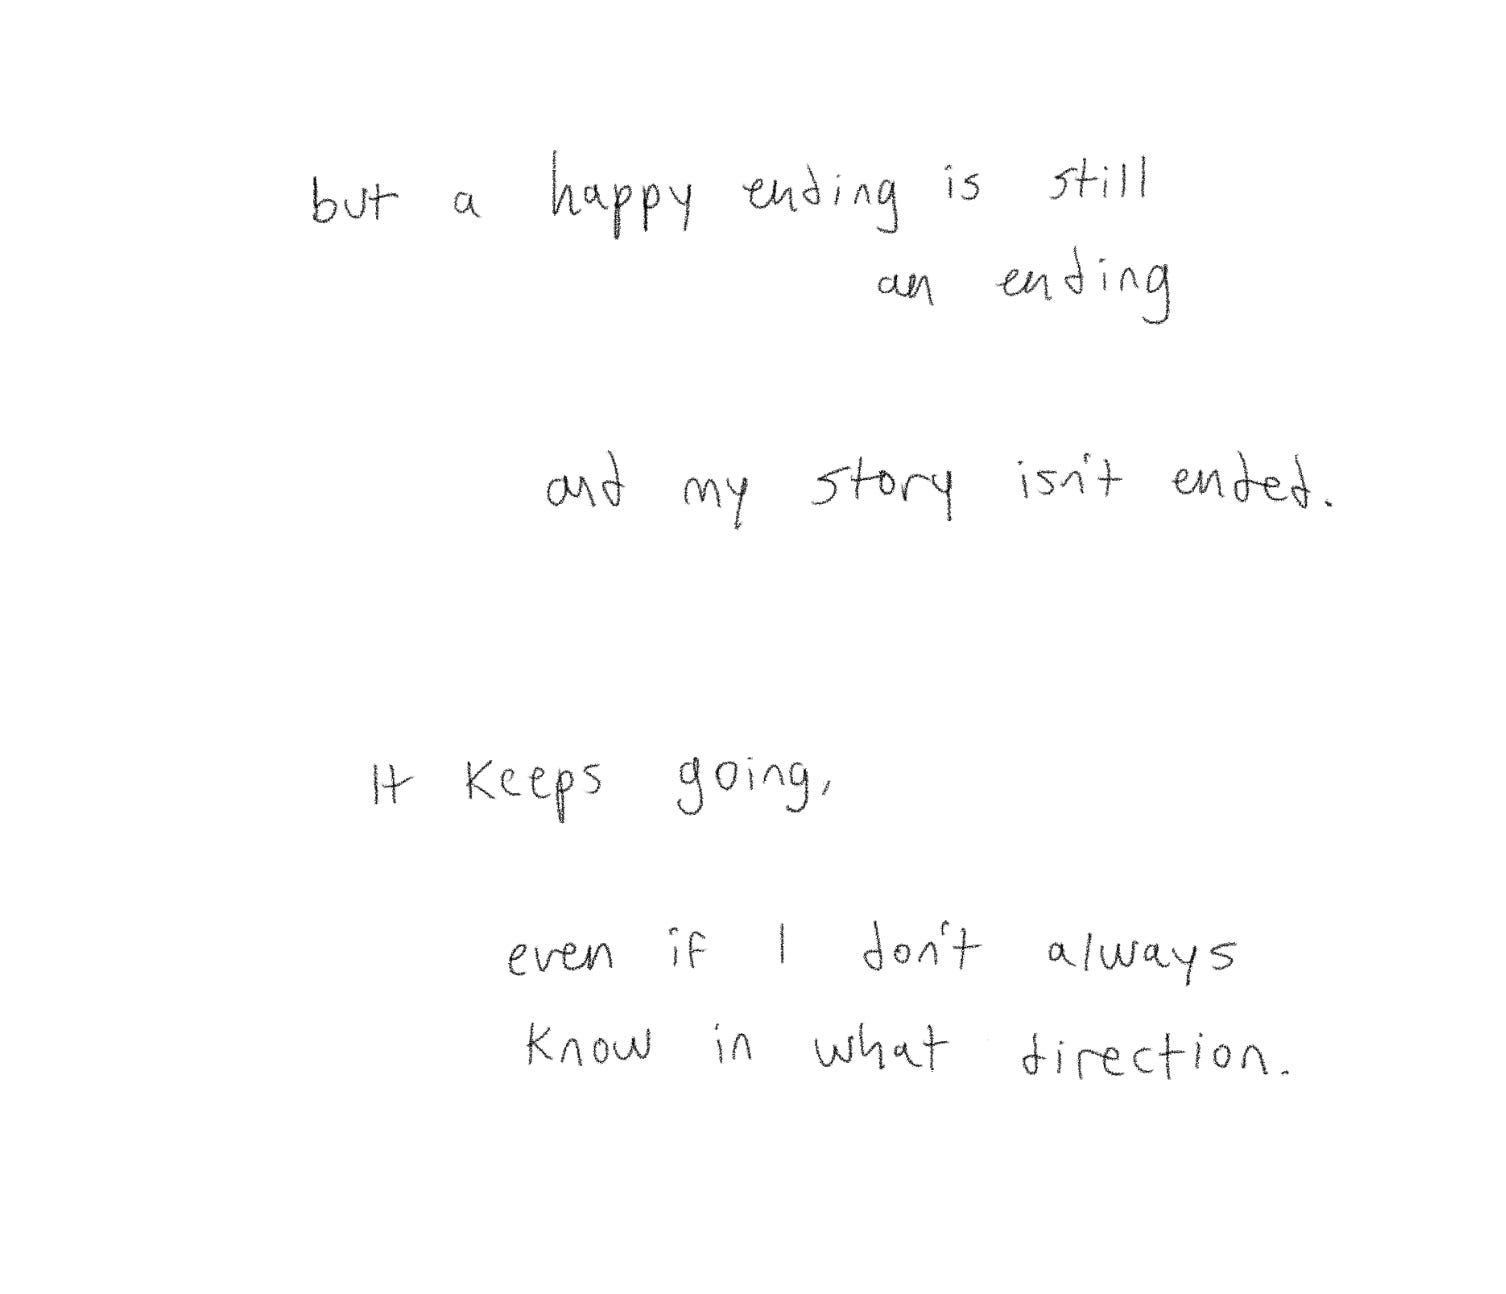 but a happy ending is still
an ending
and my story isn't ended.
It keeps going,
even if I don't always
know in what direction.